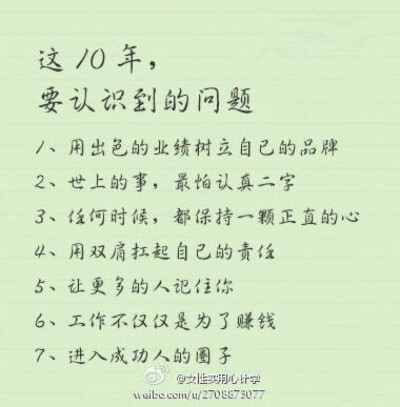 这10年，
要认识到的问题
1、用出色的业绩树立自己的品牌
2、世上的事，最怕认真二字
3、任何时候，都保持一颗正直的心
4、用双肩扛起自己的责任
5、让更多的人记住你
6、工作不仅仅是为了赚钱
7、进入成功人的圈子
@女性实用心计学
weibo.com/u/2708873077